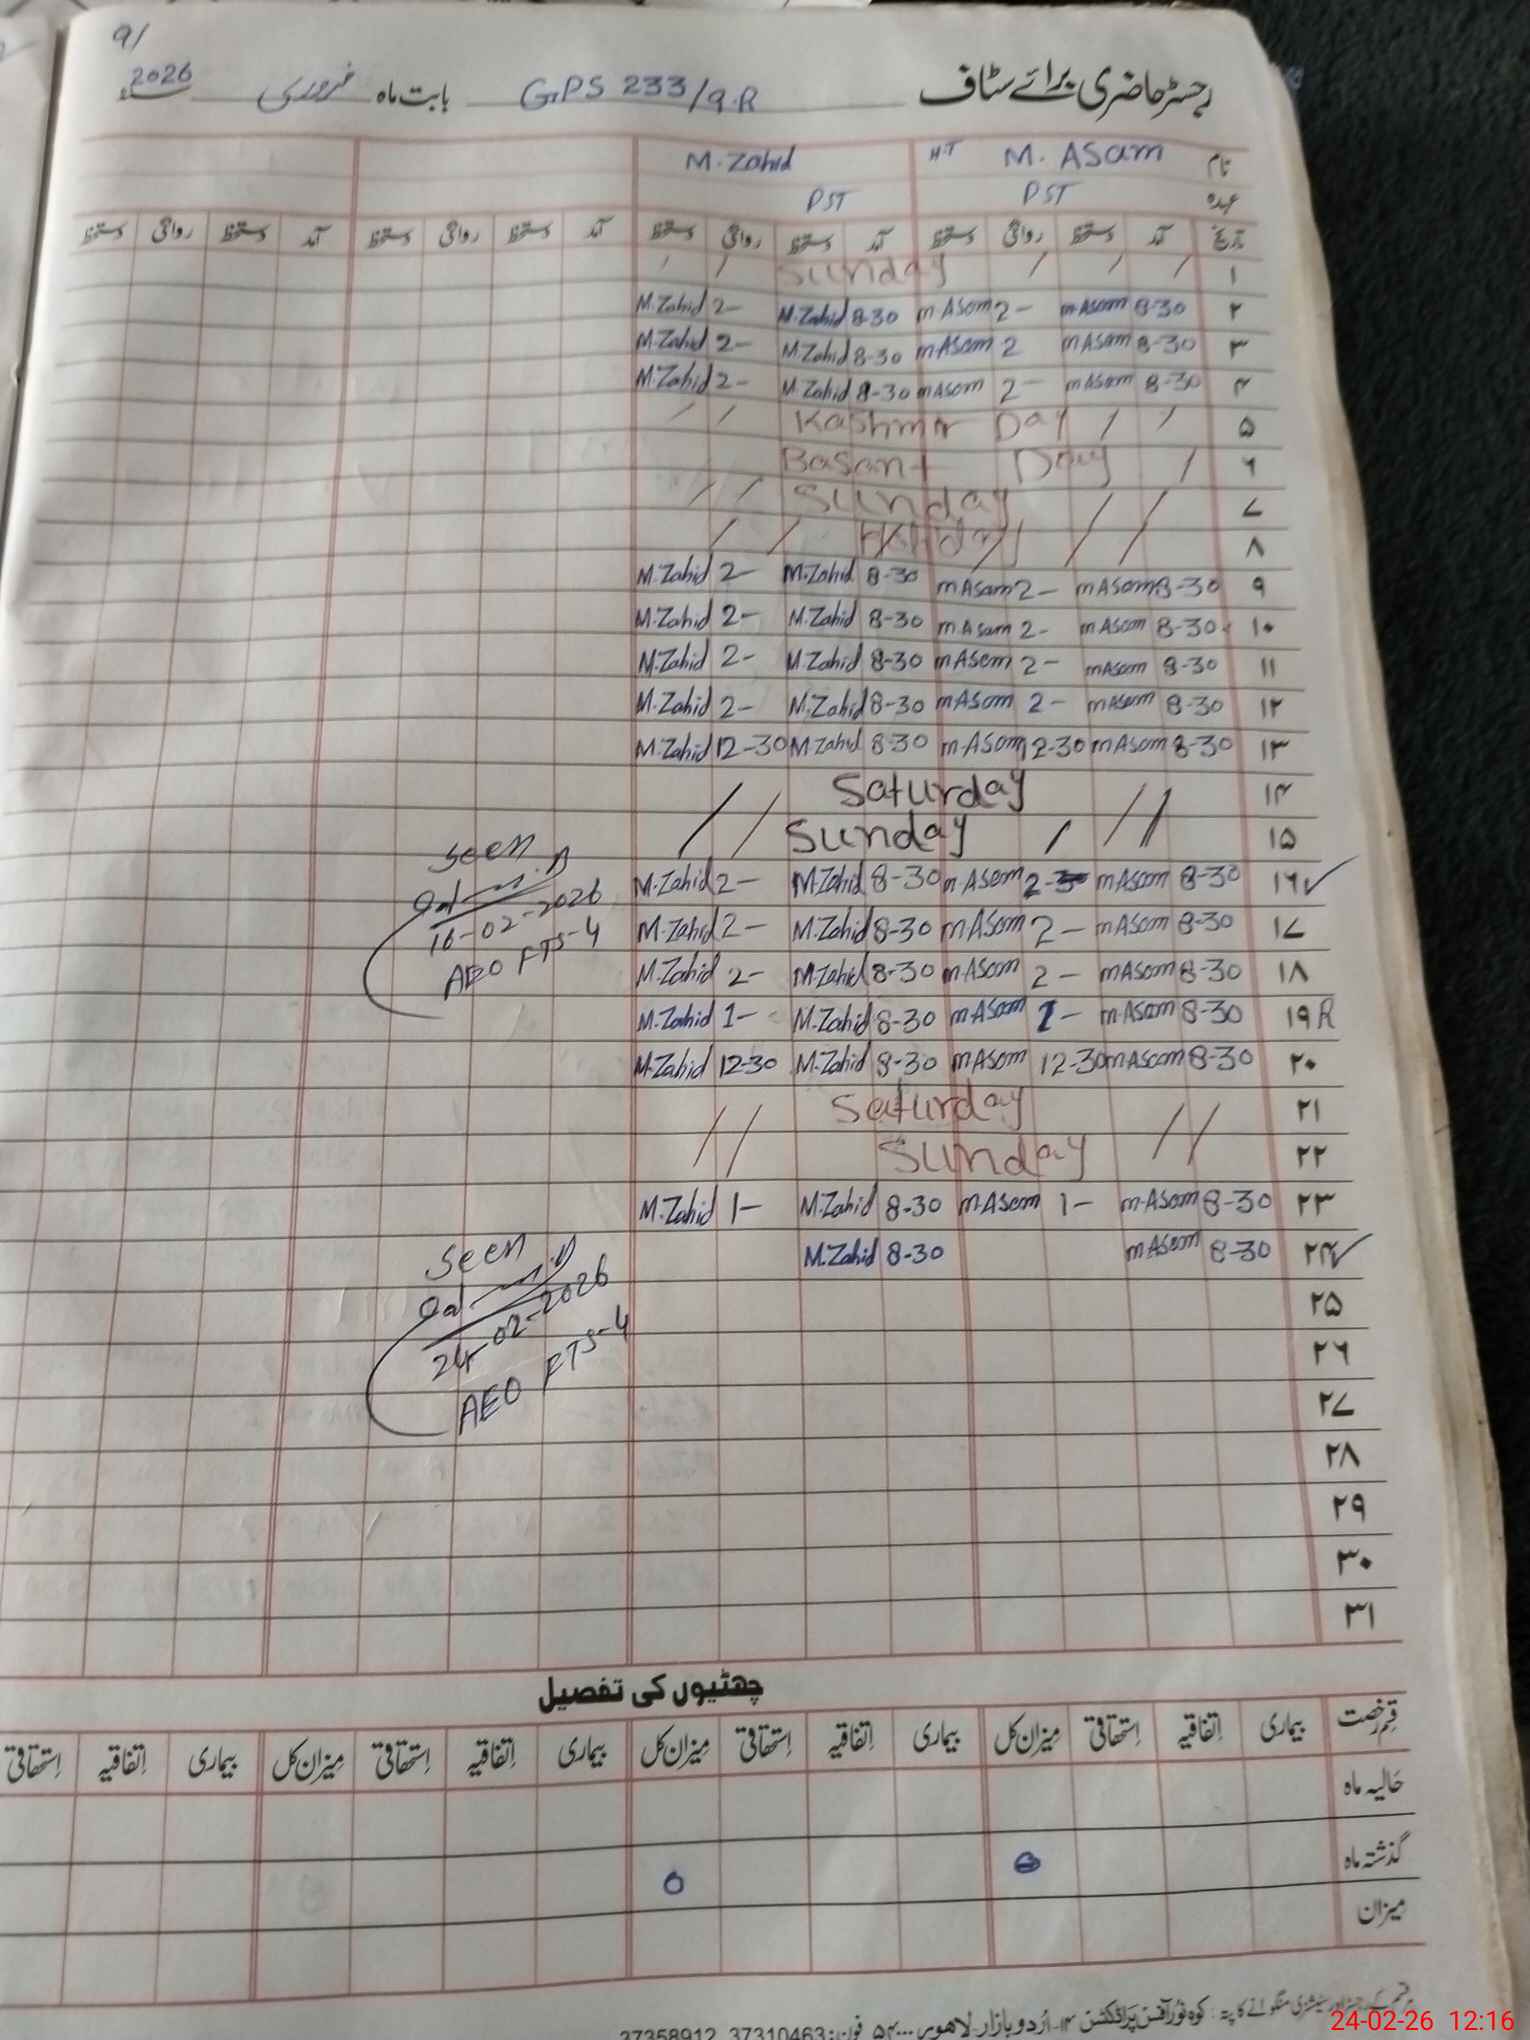 9/
رجسٹر حاضری برائے سٹاف GPS 233/9.R بابت ماہ فروری 2026ء
نام H.T M. ASam M. Zahid
عہدہ PST PST
تاریخ آمد دستخط روانگی دستخط آمد دستخط روانگی دستخط آمد دستخط روانگی دستخط آمد دستخط روانگی دستخط
۱ / / / Sunday / /
۲ 8-30 m.Asam 2- m Asam 8-30 M.Zahid 2- M.Zahid
۳ 8-30 mAsam 2 mAsam 8-30 M.Zahid 2- M.Zahid
۴ 8-30 mAsam 2- mAsam 8-30 M.Zahid 2- M.Zahid
۵ / / Kashmir Day / /
۶ / Basant Day
۷ / / Sunday / /
۸ / / / / /
۹ 8-30 mAsam 2- mAsam 8-30 M.Zahid 2- M.Zahid
۱۰ 8-30 mAsam 2- mAsam 8-30 M.Zahid 2- M.Zahid
۱۱ 8-30 mAsam 2- mAsam 8-30 M.Zahid 2- M.Zahid
۱۲ 8-30 mAsam 2- mAsam 8-30 M.Zahid 2- M.Zahid
۱۳ 8-30 mAsam 12-30 m.ASam 8-30 M.Zahid 12-30 M.Zahid
۱۴ // Saturday / /
۱۵ // / Sunday / /
۱۶ ✓ 8-30 mAsam 2- m.Asam 8-30 M.Zahid 2- M.Zahid
۱۷ 8-30 mAsam 2- mASam 8-30 M.Zahid 2- M.Zahid
۱۸ 8-30 mAsam 2- m.ASam 8-30 M.Zahid 2- M.Zahid
۱۹ R 8-30 m.Asam 1- m.ASam 8-30 M.Zahid 1- M.Zahid
۲۰ 8-30 mAsam 12-30 mAsam 8-30 M.Zahid 12-30 M.Zahid
۲۱ Saturday
۲۲ // Sunday //
۲۳ 8-30 m.Asam 1- mAsam 8-30 M.Zahid 1- M.Zahid
۲۴ ✓ 8-30 mAsam 8-30 M.Zahid
۲۵
۲۶
۲۷
۲۸
۲۹
۳۰
۳۱
seen
16-02-2026
AEO FTS-4
seen
24-02-2026
AEO FTS-4
چھٹیوں کی تفصیل
قسم رخصت بیماری اِتفاقیہ اِستحقاقی میزان کل بیماری اِتفاقیہ اِستحقاقی میزان کل بیماری اِتفاقیہ اِستحقاقی میزان کل بیماری اِتفاقیہ اِستحقاقی
حالیہ ماہ
گذشتہ ماہ 0 0
میزان
ہر قسم کے رجسٹر اور سٹیشنری منگوانے کا پتہ : کوہ نور آفس پراڈکٹس ۱۴-اُردو بازار-لاہور ۵۴۰۰۰ فون : 37310463 37358912
24-02-26 12:16